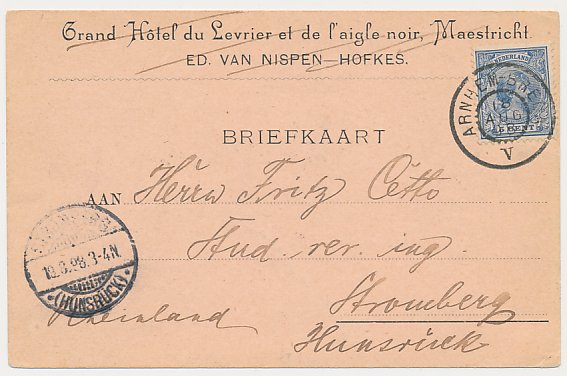 Grand Hôtel du Levrier et de l'aigle noir, Maestricht.
ED. VAN NISPEN—HOFKES.
NEDERLAND
5 CENT
ARNHEM-
AUG
V
BRIEFKAART
AAN Herrn Fritz Otto
Stud. rer. ing
Stromberg
Hunsrück
Rheinland
STROMBERG
10.8.98.3-4N.
* (HUNSRÜCK) *